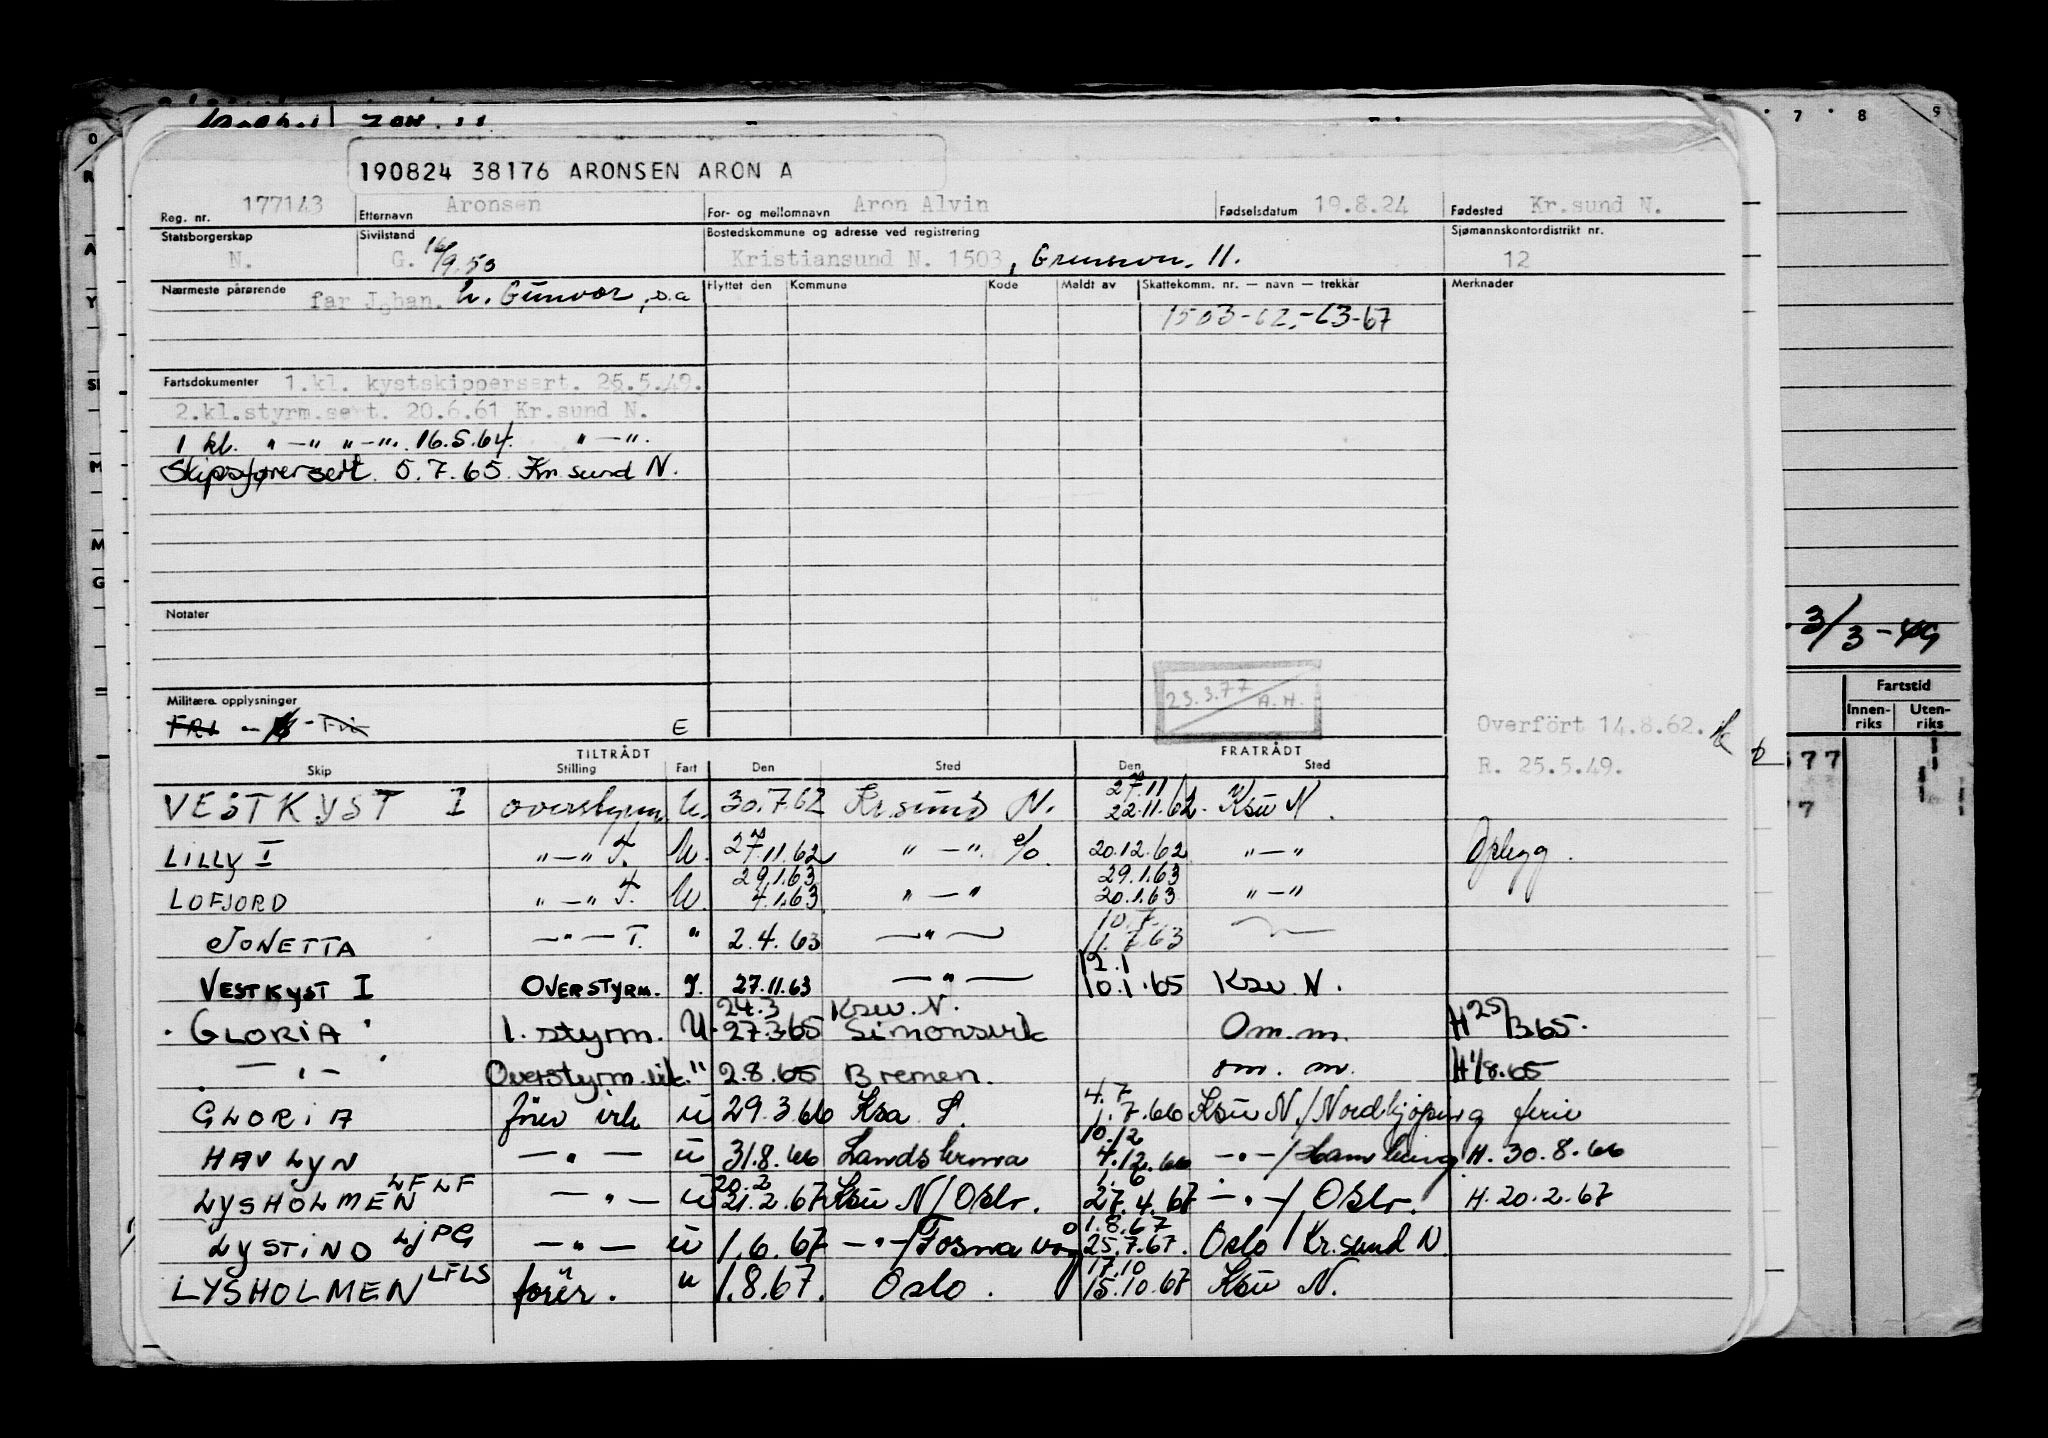 190824 38176 ARONSEN ARON A
Reg. nr. 177143 Etternavn Aronsen For- og mellomnavn Aron Alvin Fødselsdatum 19.8.24 Fødested Kr.sund N.
Statsborgerskap Sivilstand Bostedskommune og adresse ved registrering Sjømannskontordistrikt nr.
N. G. 16/9.50 Kristiansund N. 1503, 11. 12
Nærmeste pårørende far Johan. h. Gunvor, s.a Flyttet den Kommune Kode Meldt av Skattekomm. nr. — navn — trekkår Merknader
1503-62.-63-67
Fartsdokumenter 1.kl. kystskippersert. 25.5.49.
2.kl.styrm.sert. 20.6.61 Kr.sund N.
1 kl. " — " " — ". 16.5.64. " — ".
Skipsførersert. 5.7.65 Kr.sund N.
Notater
3/3-49
23.3.77 A.H.
Fartstid
Innen-riks Uten-riks
Militære opplysninger
FRI - Fri E
Overfört 14.8.62.
R. 25.5.49.
TILTRÅDT FRATRÅDT
Skip Stilling Fart Den Sted Den Sted
VESTKYST I overstyrm. U. 30.7.62 Kr.sund N. 27.11/22.11.62. Ksu N.
LILLY I " — " T. U. 27.11.62 " — ". 20.12.62 " — " Opbygg.
LOFJORD " — " T. U. 29.1.63 4.1.63 " — " 29.1.63 20.1.63 " — "
JONETTA — " — T. " 2.4.63 — " — 10.7. 11.7.63
VESTKYST I OVERSTYRM. 27.11.63 — " — 12.1 10.1.65 Ksu N.
GLORIA 1. styrm. U 24.3 27.3.65 Ksu. N. Simonsvik Om.m. H 25/3.65.
— " — Overstyrm. vik. " 2.8.65 Bremen. om. m. H 1/8.65
GLORIA förer vik u 29.3.66 Ksa S. 4.7 1.7.66 Ksu N./Nordkjöping ferie
HAVLYN — " — u 31.8.66 Landskrona 10.12 4.12.66 — " —/Hamburg H. 30.8.66
LYSHOLMEN LFLF — " — u 20.2 21.2.67 Ksu N/Oslo. 1.6 27.4.67 — " —/Oslo. H. 20.2.67
LYSTIND LJPG — " — u 1.6.67 — " —/Fosnavåg 1.8.67 25.7.67. Oslo/Kr.sund N.
LYSHOLMEN LFLS förer. " 1.8.67. Oslo. 17.10 15.10.67 Ksu N.